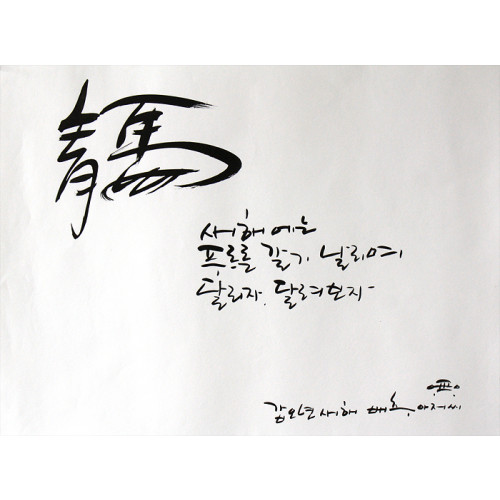 靑馬
새해에는
푸르른 갈기 날리며
달리자. 달려보자
갑오년 새해 배호 아저씨